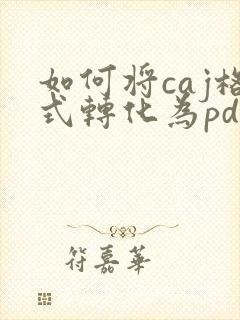 如何將caj格
式轉化為pd
符嘉華